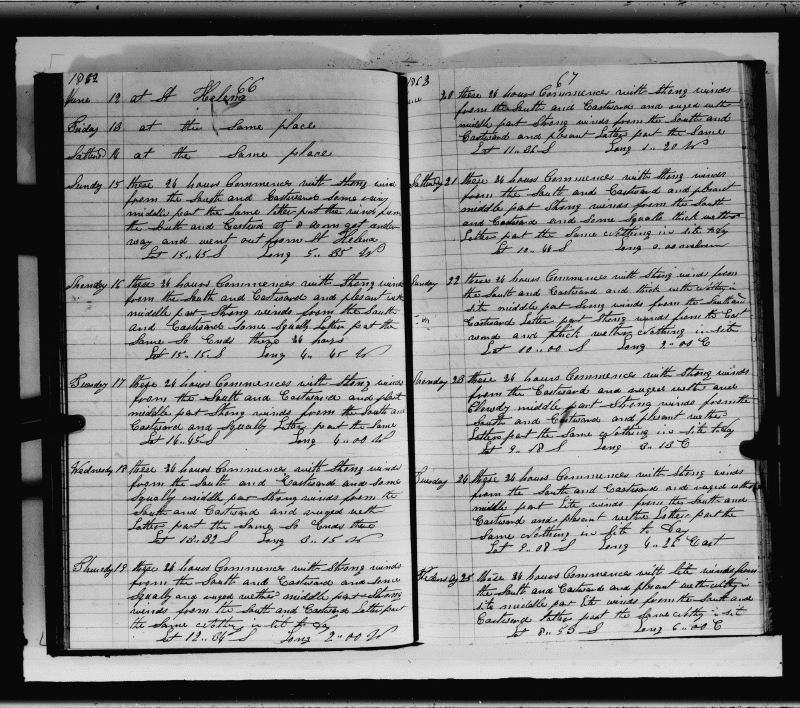 1862 66
June 12 at St Helena
Friday 13 at the same place
Satturd 14 at the same place
Sundy 15 these 24 hours Commences with strong wind
from the South and Eastward some
middle part the same latter part the winds from
the South and Eastward at 8 got under
way and went out from St Helena
Lat 15..45 S Long 5..35 W
Monday 16 these 24 hours Commences with Strong winds
from the South and Eastward and plesant
middle part Strong winds from the South
and Eastward Some Squaly Latter part the
same So Ends these 24 hours
Lat 15..15 S Long 4..45 W
Tuesday 17 these 24 hours Commences with Strong winds
from the South and Eastward and
middle part Strong winds from the South and
Eastward and Squaly Latter part the Same
Lat 14..45 S Long 4..00 W
Wednesdy 18 these 24 hours Commences with Strong winds
from the South and Eastward and Some
Squaly middle part Strong winds from the
South and Eastward and ruged weth
Latter part the Same So Ends these
Lat 13..32 S Long 3..15 W
Thursdy 19 these 24 hours Commences with Strong winds
from the South and Eastward and some
Squaly and ruged wether middle part Strong
winds from the South and Eastward Latter part
the same nothing in sit to Day
Lat 12.. S Long 2..00 W
1862 67
20 these 24 hours Commences with Strong winds
from the South and Eastward and ruged wether
middle part Strong winds from the South and
Eastward and plesant Latter part the Same
Lat 11..36 S Long 1..20 W
Satturdy 21 these 24 hours Commences with Strong winds
from the South and Eastward and plesant
middle part Strong winds from the South
and Eastward and Some Squals thick wether
Latter part the Same nothing in sit to dy
Lat 10..44 S Long 0..00
Sunday 22 these 24 hours Commences with Strong winds from
the South and Eastward and thick weth nothing in
sit middle part Strong winds from the South and
Eastward Latter part Strong winds from the East
ward and thick wethr nothing in sit
Lat 10..00 S Long 2..00 E
Monday 23 these 24 hours Commences with Strong winds
from the Eastward and ruged wether and
Cloudy middle part Strong winds from the
South and Eastward and plesant wether
Latter part the Same nothing in sit to dy
Lat 9..18 S Long 3..13 E
Tuesday 24 these 24 hours Commences with Strong winds
from the South and Eastward and ruged wether
middle part Lite winds from the South and
Eastward and plesant wether Latter part the
Same nothing in site to Day
Lat 9..08 S Long 4..26 East
25 these 24 hours Commences with Lite winds from
the South and Eastward and plesant weth nothing in
sit middle part Lite winds from the South and
Eastward Latter part the same nothing in sit
Lat 8..53 S Long 6..00 E